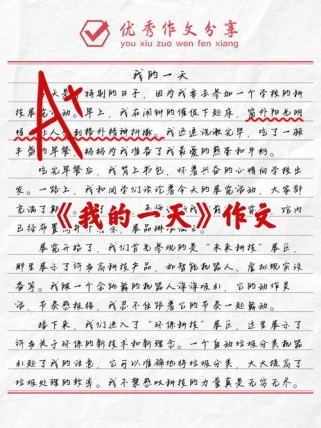 优秀作文分享
you xiu zuo wen fen xiang
我的一天
A+
天是特别的日子，因为我要去参加一个学校的科
技展览活动。早上，我在闹钟的催促下起床，窗外阳光明
媚，让人感到格外精神抖擞。我迅速洗漱完毕，吃了一顿
丰盛的早餐，妈妈为我准备了我最爱的煎蛋和牛奶。
吃完早餐后，我背上书包，怀着兴奋的心情向学校出
发。一路上，我和同学们谈论着今天的展览活动，大家都
充满了
《我的一天》作文
馆内
已经布置
展览开始了，我们首先参观的是“未来科技”展区，
那里展示了许多高科技产品，如智能机器人、虚拟现实设
备等。我被一个会跳舞的机器人深深吸引，它的动作灵
活，节奏感极强，我忍不住跟着它的节奏一起舞动。
接下来，我们进入了“环保科技”展区，这里展示了
许多关于环保的新技术和新理念。一个自动垃圾分类机器
引起了我的注意，它可以准确地将垃圾分类，大大提高了
垃圾处理的效率。我不禁感叹科技的力量真是无穷无尽。